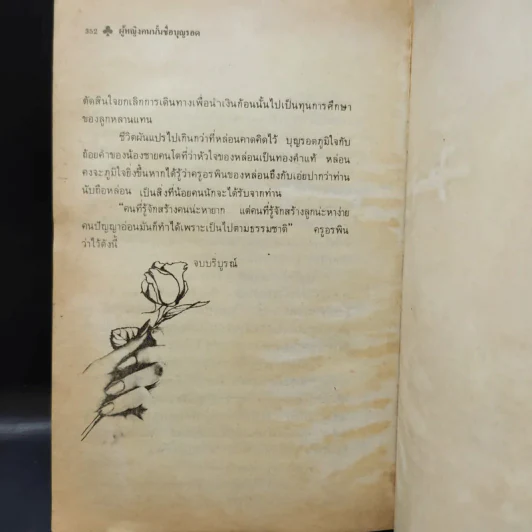 ๓๖๒ ♣ ผู้หญิงคนนั้นชื่อบุญรอด
ตัดสินใจยกเลิกการเดินทางเพื่อนำเงินก้อนนั้นไปเป็นทุนการศึกษา
ของลูกหลานแทน
ชีวิตผันแปรไปเกินกว่าที่หล่อนคาดคิดไว้ บุญรอดภูมิใจกับ
ถ้อยคำของน้องชายคนโตที่ว่าหัวใจของหล่อนเป็นทองคำแท้ หล่อน
คงจะภูมิใจยิ่งขึ้นหากได้รู้ว่าครูอรพินของหล่อนถึงกับเอ่ยปากว่าท่าน
นับถือหล่อน เป็นสิ่งที่น้อยคนนักจะได้รับจากท่าน
“คนที่รู้จักสร้างคนน่ะหายาก แต่คนที่รู้จักสร้างลูกน่ะหาง่าย
คนปัญญาอ่อนมันก็ทำได้เพราะเป็นไปตามธรรมชาติ” ครูอรพิน
ว่าไว้ดังนี้
จบบริบูรณ์